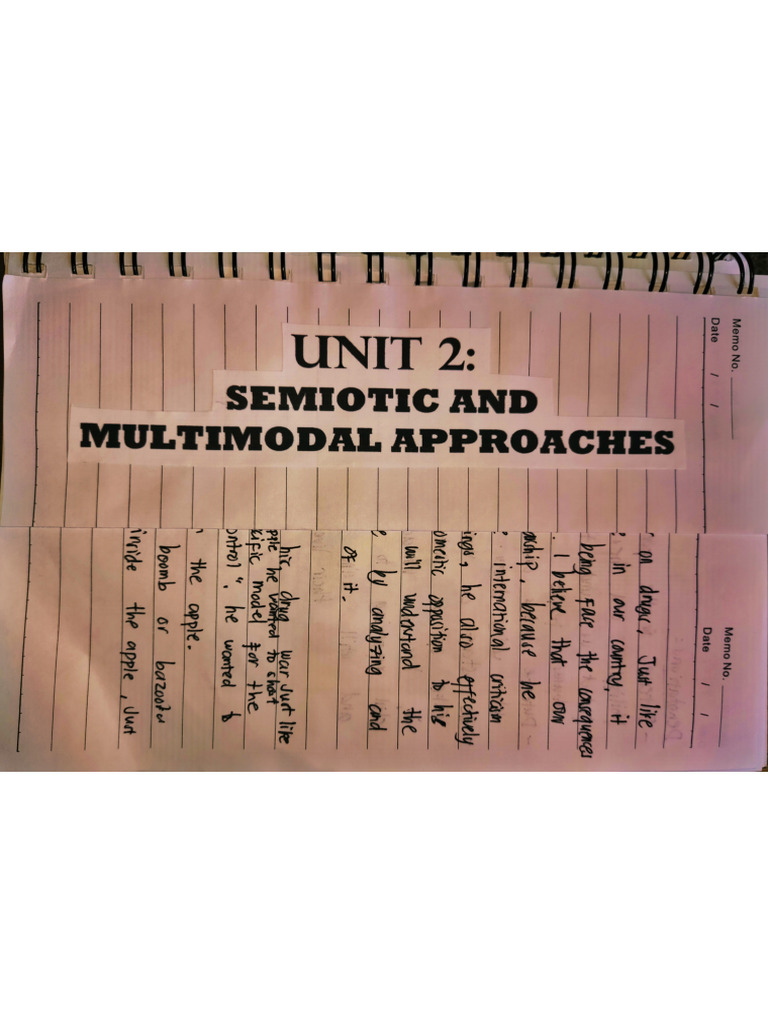 UNIT 2:
SEMIOTIC AND
MULTIMODAL APPROACHES
Memo No.
Date / /
Memo No.
Date / /
on drugs, Just like
in our country, it
being face the consequences
I believe that own
because he
international criticism
he also effectively
opposition to his
will understand the
by analyzing and
of it.
his drug war Just like
he wanted to shoot
model for the
he wanted to
the apple.
boomb or bazooka
inside the apple, Just